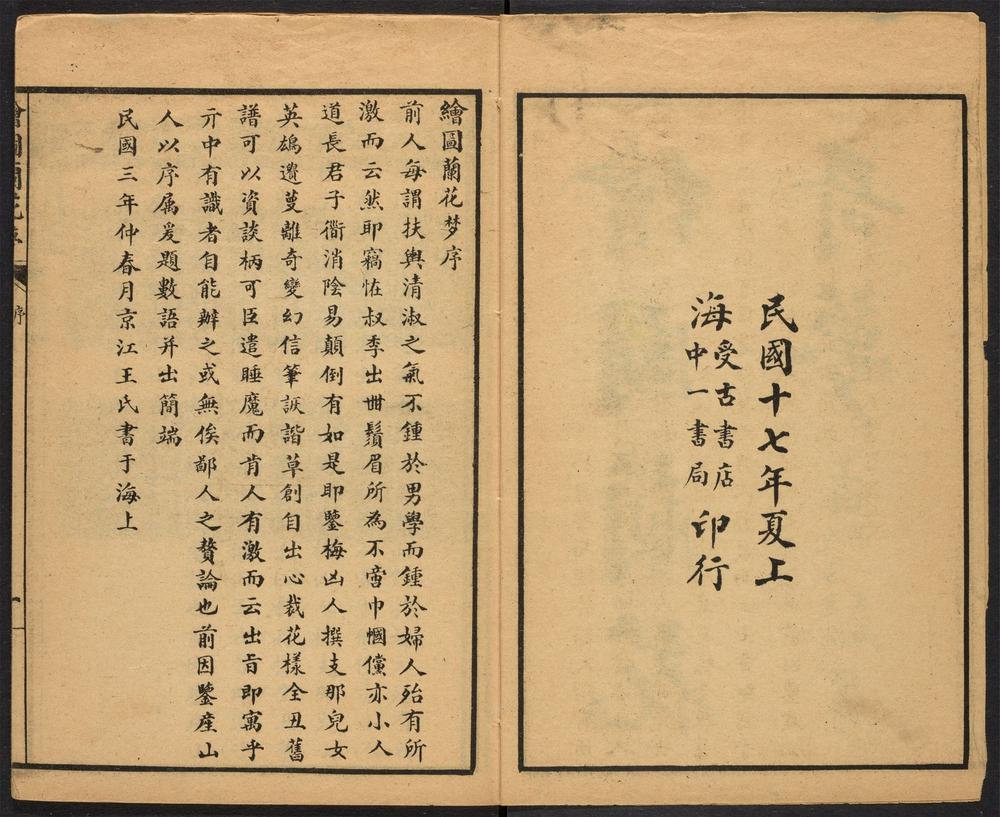 民國十七年夏上
海受古書店中一書局印行
繪圖蘭花梦序
前人每謂扶輿清淑之氣不鍾於男學而鍾於婦人殆有所
激而云然即竊恠叔季出丗鬚眉所為不啻巾幗儻亦小人
道長君子衟消陰易顛倒有如是即鑒梅凶人撰支那兒女
英鴟遷蔓離奇變幻信筆詼諧草創自出心裁花樣全丑舊
譜可以資談柄可臣遣睡魔而肯人有激而云出旨即寓乎
亓中有識者自能辦之或無俟鄙人之贅論也前因鑒産山
人以序属爰題數語并出簡端
民國三年仲春月京江王氏書于海上
繪圖蘭花梦
序
一